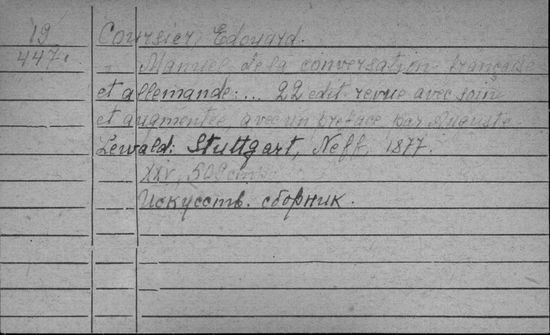 19
447.
Coursier, Edouard.
Manuel de la conversation française
et allemande:... 22 edit. revue avec soin
et augmentée, avec un preface par Auguste
Lewald: Stuttgart, Neff, 1877.
XXV, 508 стр.
Искусств. сборник.